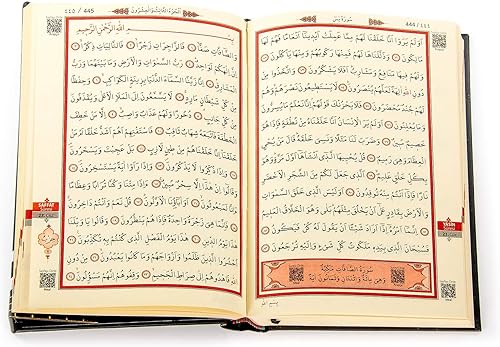 444 / ٤٤٤
سُورَةُ يٰسٓ
اَوَلَمْ يَرَوْا اَنَّا خَلَقْنَا لَهُمْ مِمَّا عَمِلَتْ اَيْدِينَٓا اَنْعَامًا فَهُمْ لَهَا
مَالِكُونَ وَذَلَّلْنَاهَا لَهُمْ فَمِنْهَا رَكُوبُهُمْ وَمِنْهَا يَأْكُلُونَ
وَلَهُمْ فِيهَا مَنَافِعُ وَمَشَارِبُ اَفَلَا يَشْكُرُونَ وَاتَّخَذُوا مِنْ
دُونِ اللّٰهِ اٰلِهَةً لَعَلَّهُمْ يُنْصَرُونَ لَا يَسْتَطِيعُونَ نَصْرَهُمْ وَهُمْ
لَهُمْ جُنْدٌ مُحْضَرُونَ فَلَا يَحْزُنْكَ قَوْلُهُمْ اِنَّا نَعْلَمُ مَا يُسِرُّونَ
وَمَا يُعْلِنُونَ اَوَلَمْ يَرَ الْاِنْسَانُ اَنَّا خَلَقْنَاهُ مِنْ نُطْفَةٍ فَاِذَا هُوَ
خَصِيمٌ مُبِينٌ وَضَرَبَ لَنَا مَثَلًا وَنَسِيَ خَلْقَهُ قَالَ مَنْ يُحْيِي
الْعِظَامَ وَهِيَ رَمِيمٌ قُلْ يُحْيِيهَا الَّذِٓي اَنْشَاَهَٓا اَوَّلَ مَرَّةٍ وَهُوَ بِكُلِّ
خَلْقٍ عَلِيمٌ اَلَّذِي جَعَلَ لَكُمْ مِنَ الشَّجَرِ الْاَخْضَرِ
نَارًا فَاِذَٓا اَنْتُمْ مِنْهُ تُوقِدُونَ اَوَلَيْسَ الَّذِي خَلَقَ السَّمٰوَاتِ
وَالْاَرْضَ بِقَادِرٍ عَلٰٓى اَنْ يَخْلُقَ مِثْلَهُمْ بَلٰى وَهُوَ الْخَلَّاقُ الْعَلِيمُ
اِنَّمَٓا اَمْرُهُٓ اِذَٓا اَرَادَ شَيْئًا اَنْ يَقُولَ لَهُ كُنْ فَيَكُونُ
فَسُبْحَانَ الَّذِي بِيَدِهِ مَلَكُوتُ كُلِّ شَيْءٍ وَاِلَيْهِ تُرْجَعُونَ
سُورَةُ الصَّافَّاتِ مَكِّيَّةٌ
وَهِيَ مِائَةٌ وَاثْنَتَانِ وَثَمَانُونَ اٰيَةً
YASİN
٤٤٥ / 445
اَلْجُزْءُ الثَّالِثُ وَالْعِشْرُونَ
بِسْمِ اللّٰهِ الرَّحْمٰنِ الرَّحِيمِ
وَالصَّٓافَّاتِ صَفًّا فَالزَّاجِرَاتِ زَجْرًا فَالتَّالِيَاتِ ذِكْرًا
اِنَّ اِلٰهَكُمْ لَوَاحِدٌ رَبُّ السَّمٰوَاتِ وَالْاَرْضِ وَمَا بَيْنَهُمَا وَرَبُّ
الْمَشَارِقِ اِنَّا زَيَّنَّا السَّمَٓاءَ الدُّنْيَا بِزِينَةٍ الْكَوَاكِبِ وَحِفْظًا مِنْ
كُلِّ شَيْطَانٍ مَارِدٍ لَا يَسَّمَّعُونَ اِلَى الْمَلَأِ الْاَعْلٰى وَيُقْذَفُونَ
مِنْ كُلِّ جَانِبٍ دُحُورًا وَلَهُمْ عَذَابٌ وَاصِبٌ اِلَّا مَنْ خَطِفَ
الْخَطْفَةَ فَاَتْبَعَهُ شِهَابٌ ثَاقِبٌ فَاسْتَفْتِهِمْ اَهُمْ اَشَدُّ خَلْقًا اَمْ مَنْ
خَلَقْنَا اِنَّا خَلَقْنَاهُمْ مِنْ طِينٍ لَازِبٍ بَلْ عَجِبْتَ وَيَسْخَرُونَ
وَاِذَا ذُكِّرُوا لَا يَذْكُرُونَ وَاِذَا رَاَوْا اٰيَةً يَسْتَسْخِرُونَ
وَقَالُٓوا اِنْ هٰذَٓا اِلَّا سِحْرٌ مُبِينٌ ءَاِذَا مِتْنَا وَكُنَّا تُرَابًا وَعِظَامًا
ءَاِنَّا لَمَبْعُوثُونَ اَوَاٰبَٓاؤُنَا الْاَوَّلُونَ قُلْ نَعَمْ وَاَنْتُمْ
دَاخِرُونَ فَاِنَّمَا هِيَ زَجْرَةٌ وَاحِدَةٌ فَاِذَا هُمْ يَنْظُرُونَ وَقَالُوا يَا وَيْلَنَا هٰذَا
يَوْمُ الدِّينِ هٰذَا يَوْمُ الْفَصْلِ الَّذِي كُنْتُمْ بِهِ تُكَذِّبُونَ
اُحْشُرُوا الَّذِينَ ظَلَمُوا وَاَزْوَاجَهُمْ وَمَا كَانُوا يَعْبُدُونَ مِنْ دُونِ
اللّٰهِ فَاهْدُوهُمْ اِلٰى صِرَاطِ الْجَحِيمِ وَقِفُوهُمْ اِنَّهُمْ مَسْؤُلُونَ
SAFFAT